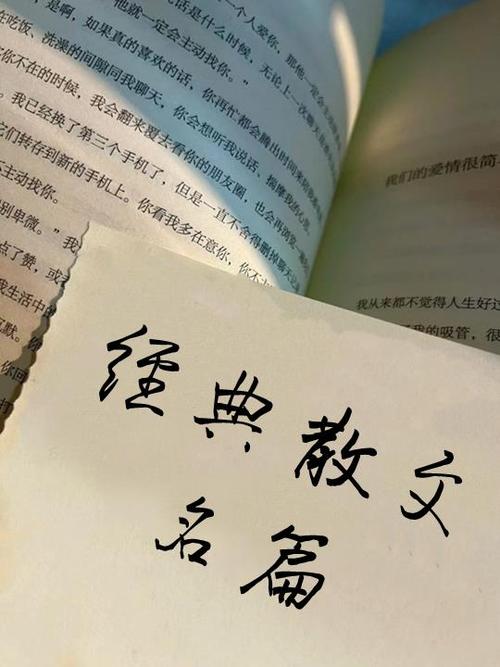 一个人爱你，那他一定会主
他就一定会主动找你。”
话是什么时候，无论上一次聊天
是啊，如果真的喜欢的话，你再忙都会腾出时间来陪
在吃饭、洗澡的间隙同我聊天，你会想听我说话、揣摩我的心思
你不在的时候，我会翻来覆去看你的朋友圈，也会再浏览一
我已经换了第三个手机了，但是一直不舍得删掉聊天
它们转存到新的手机上。你看我多在意你，你不
主动找你。
别卑微。”我
点了赞，或
我生活中的
沉默。你
你回
打
我们的爱情很简
我从来都不觉得人生好过
我的吸管，很
经典散文
名篇